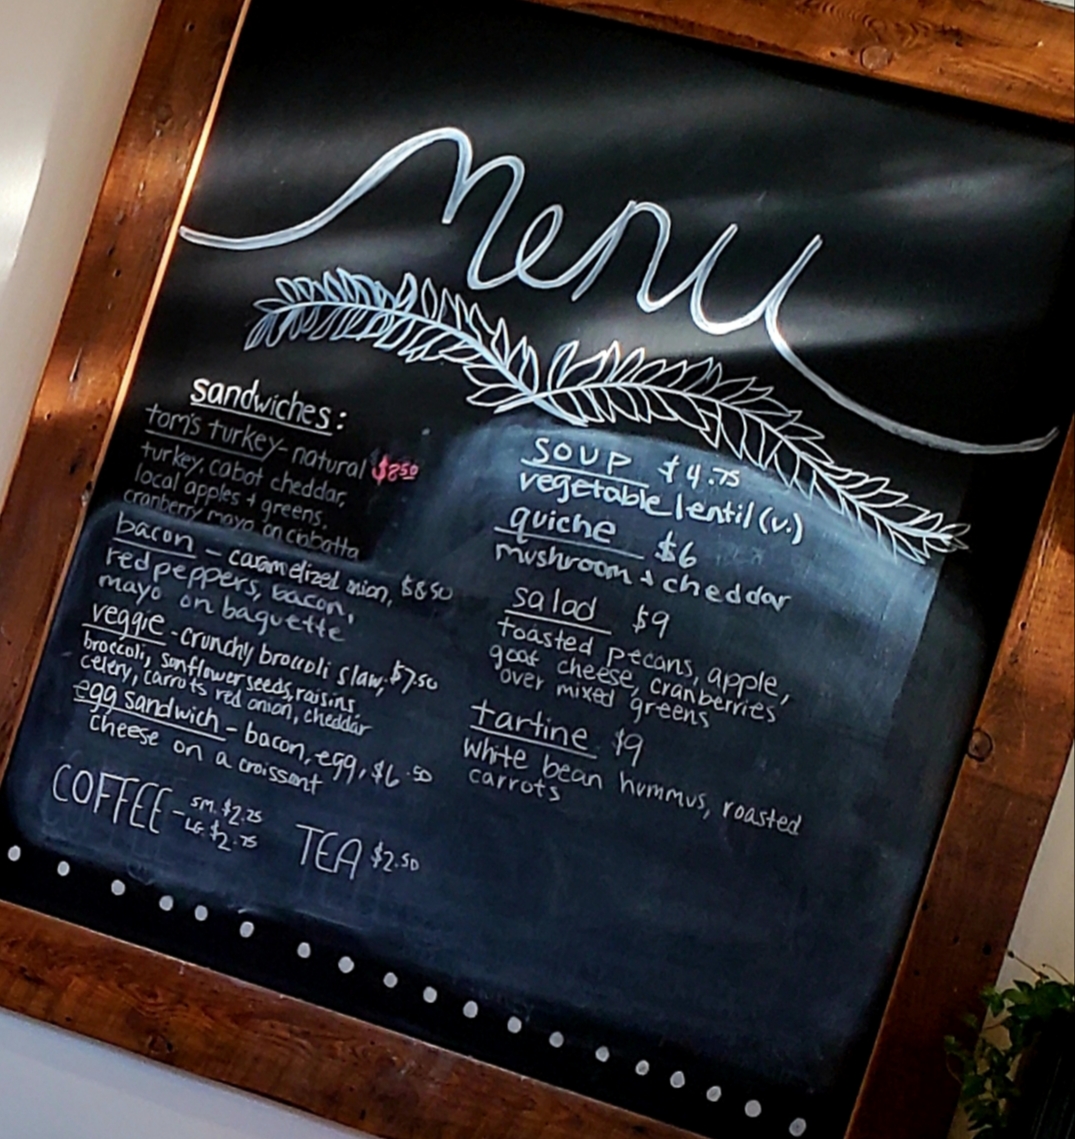 Menu
sandwiches:
tom's turkey - natural $8.50
turkey, cabot cheddar,
local apples + greens.
cranberry mayo on ciabatta
bacon - caramelized onion, $8.50
red peppers, bacon,
mayo on baguette
veggie - crunchy broccoli slaw, $7.50
broccoli, sunflower seeds, raisins
celery, carrots red onion, cheddar
egg sandwich - bacon, egg, $6.50
cheese on a croissant
COFFEE - SM. $2.25
LG. $2.75
TEA $2.50
soup $4.75
vegetable lentil (v.)
quiche $6
mushroom + cheddar
salad $9
toasted pecans, apple,
goat cheese, cranberries
over mixed greens
tartine $9
white bean hummus, roasted
carrots